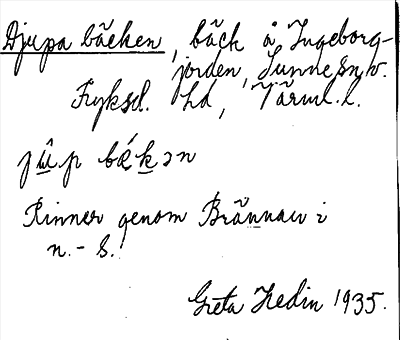 Djupa bäcken, bäck å Ingeborg-
jorden, Sunne sn, v.
Fryksd. hd, Värml. l.
jụ̄p bækən
Rinner genom Brännan i
n. - s.
Greta Hedin 1935.